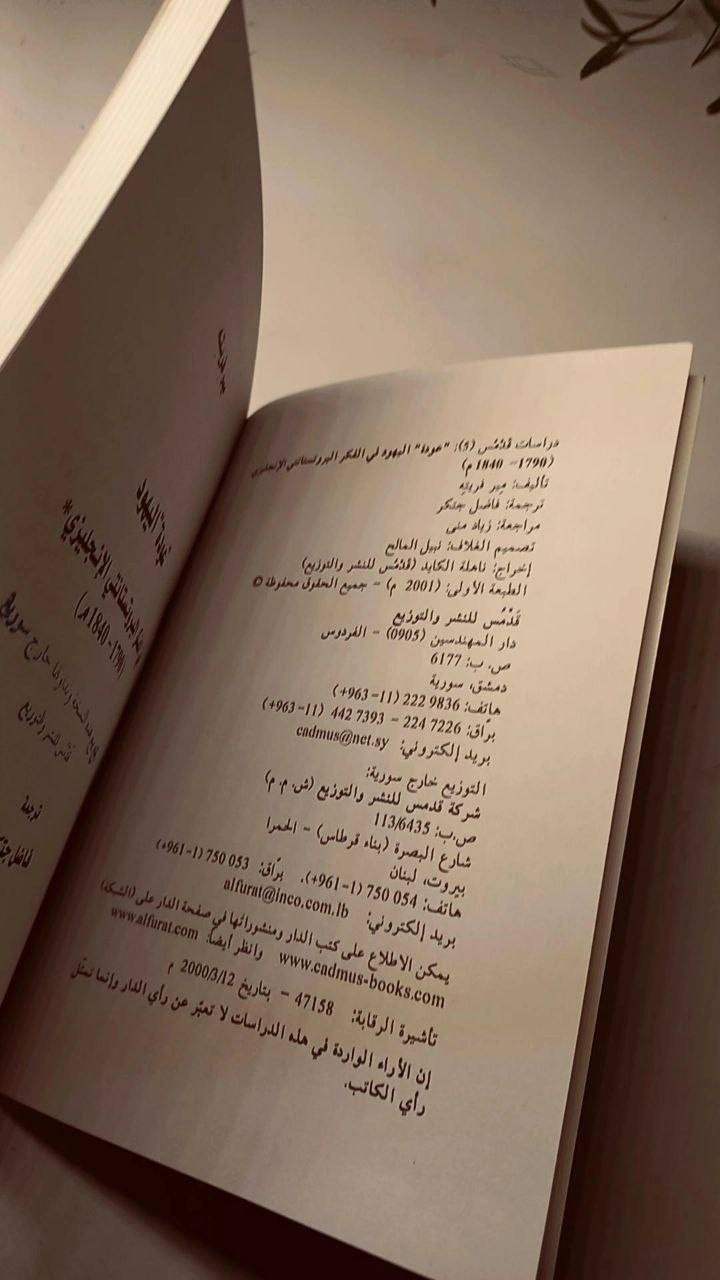 دراسات قَدْمُس (5): "عودة" اليهود في الفكر البروتستانتي الإنجليزي
(1790 – 1840 م)
تأليف: مير فريته
ترجمة: فاضل جتكر
مراجعة: زياد منى
تصميم الغلاف: نبيل المالح
إخراج: ناهلة الكايد (قَدْمُس للنشر والتوزيع)
الطبعة الأولى: (2001 م) – جميع الحقوق محفوظة ©
قَدْمُس للنشر والتوزيع
دار المهندسين (0905) – الفردوس
ص. ب: 6177
دمشق، سورية
هاتف: 9836 222 (11– 963+)
برّاق: 7226 224 – 7393 442 (11– 963+)
بريد إلكتروني: cadmus@net.sy
التوزيع خارج سورية:
شركة قدمس للنشر والتوزيع (ش. م. م)
ص.ب: 113/6435
شارع البصرة (بناء قرطاس) – الحمرا
بيروت، لبنان
هاتف: 054 750 (1–961+). برّاق: 053 750 (1–961+)
بريد إلكتروني: alfurat@inco.com.lb
يمكن الاطلاع على كتب الدار ومنشوراتها في صفحة الدار على (الشبكة)
www.cadmus-books.com وانظر أيضاً: www.alfurat.com
تأشيرة الرقابة: 47158 – بتاريخ 2000/3/12 م
إن الآراء الواردة في هذه الدراسات لا تعبّر عن رأي الدار وإنما تمثّل
رأي الكاتب.
عودة اليهود
البروتستانتي الإنجليزي*
1790- 1840 م)
خارج سورية
قدمس للنشر والتوزيع
ترجمة
فاضل